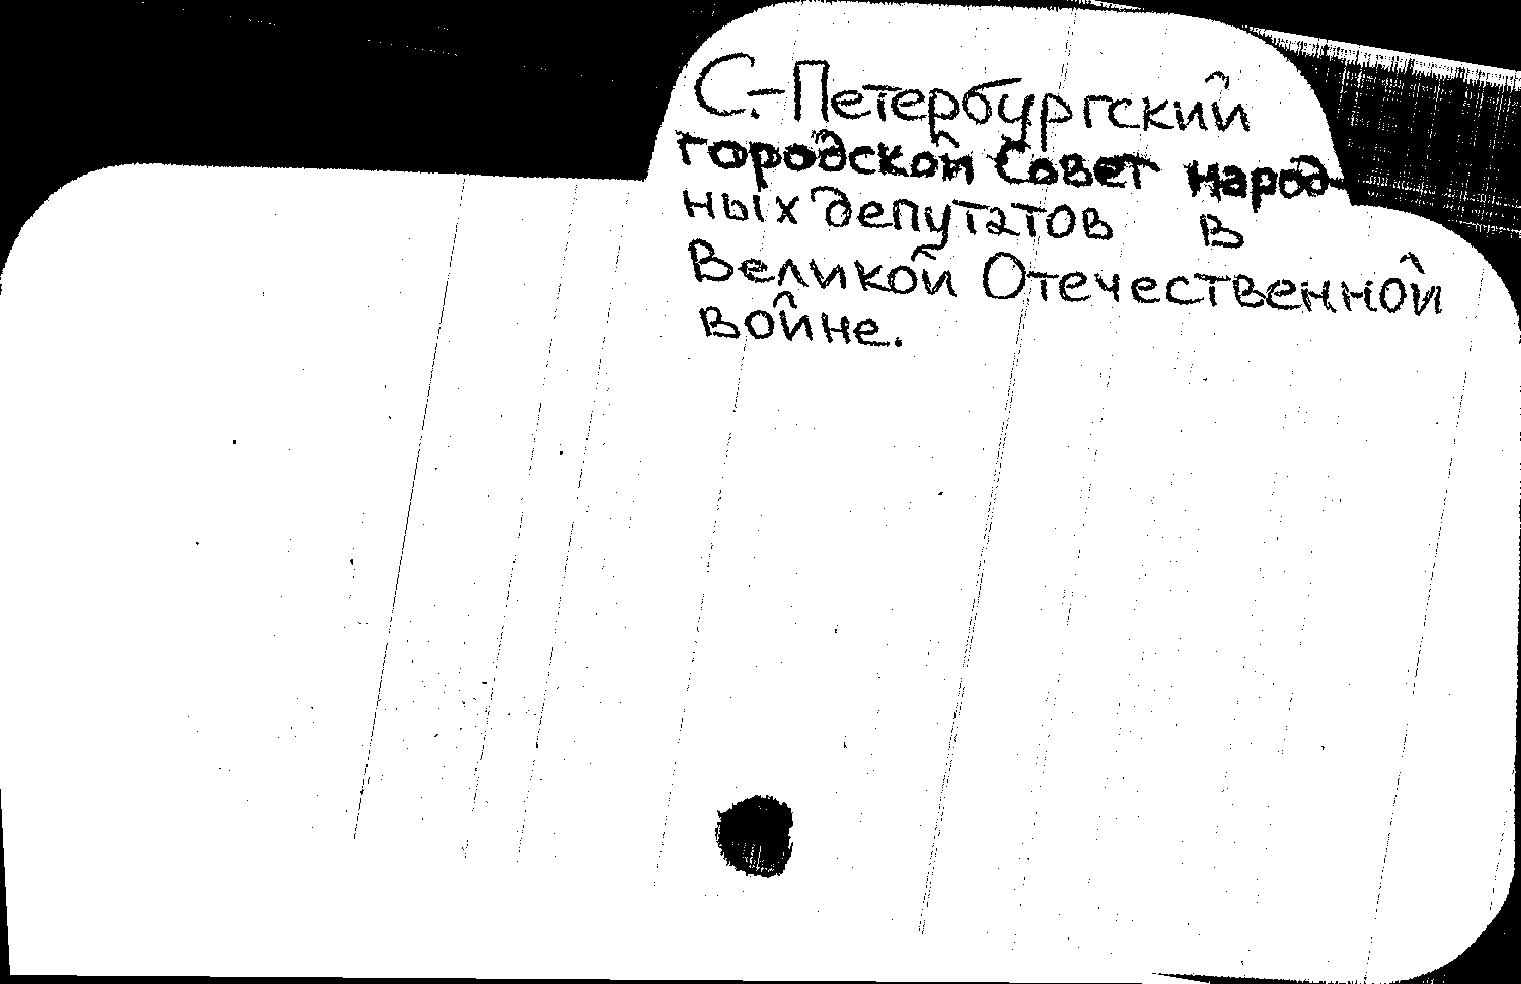 С.-Петербургский
городской Совет народ-
ных депутатов в
Великой Отечественной
войне.